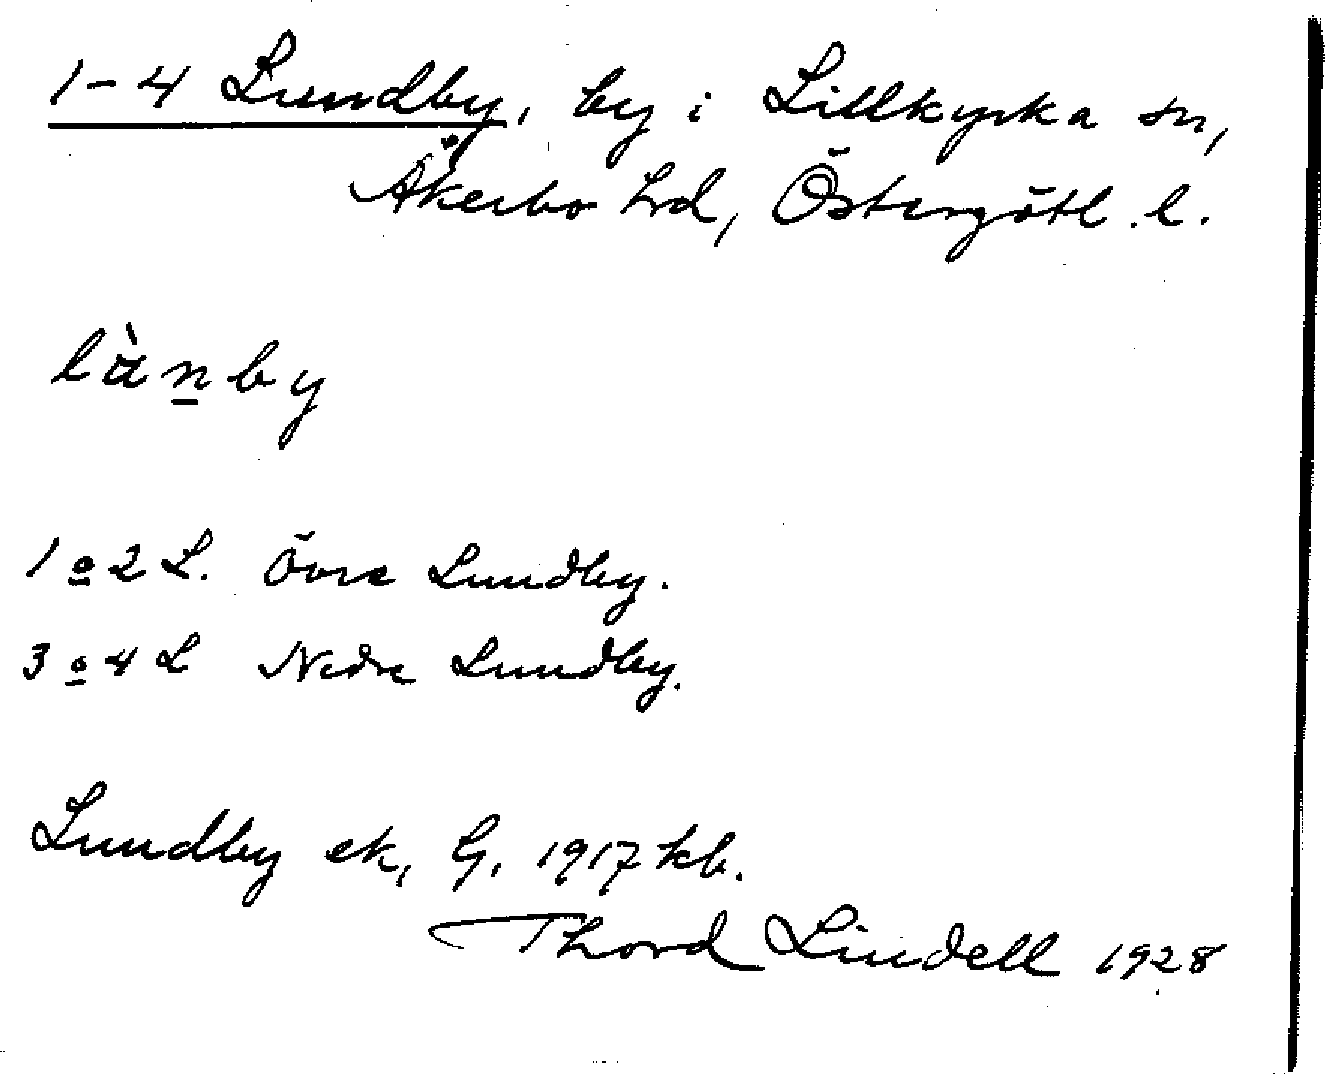 1-4 Lundby, by i Lillkyrka sn,
Åkerbo hrd, Östergötl. l.
lànby
1 o 2 L. Övre Lundby.
3 o 4 L Nedre Lundby.
Lundby ek, G, 1917 kb.
Thord Lindell 1928